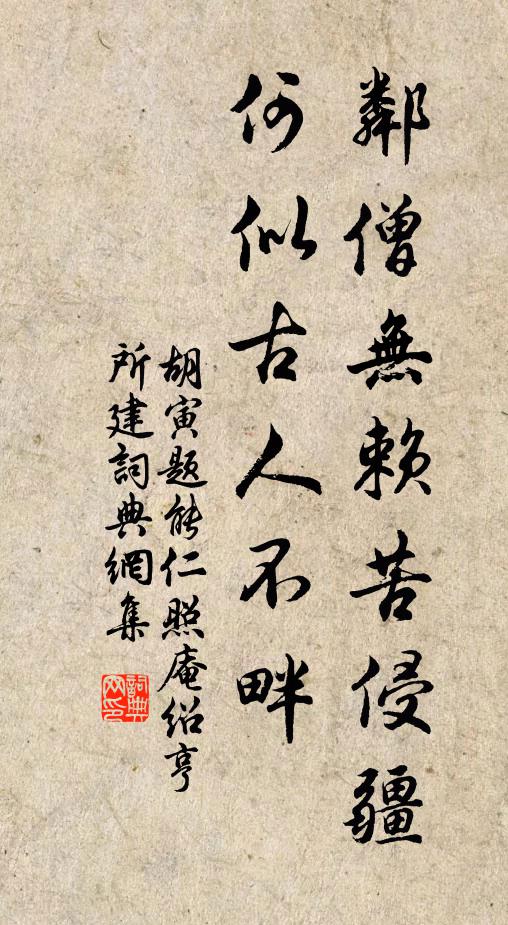 鄰僧無賴苦侵疆
何似古人不畔
胡寅題能仁照庵紹亨
所建詞典網集
詞典
网印